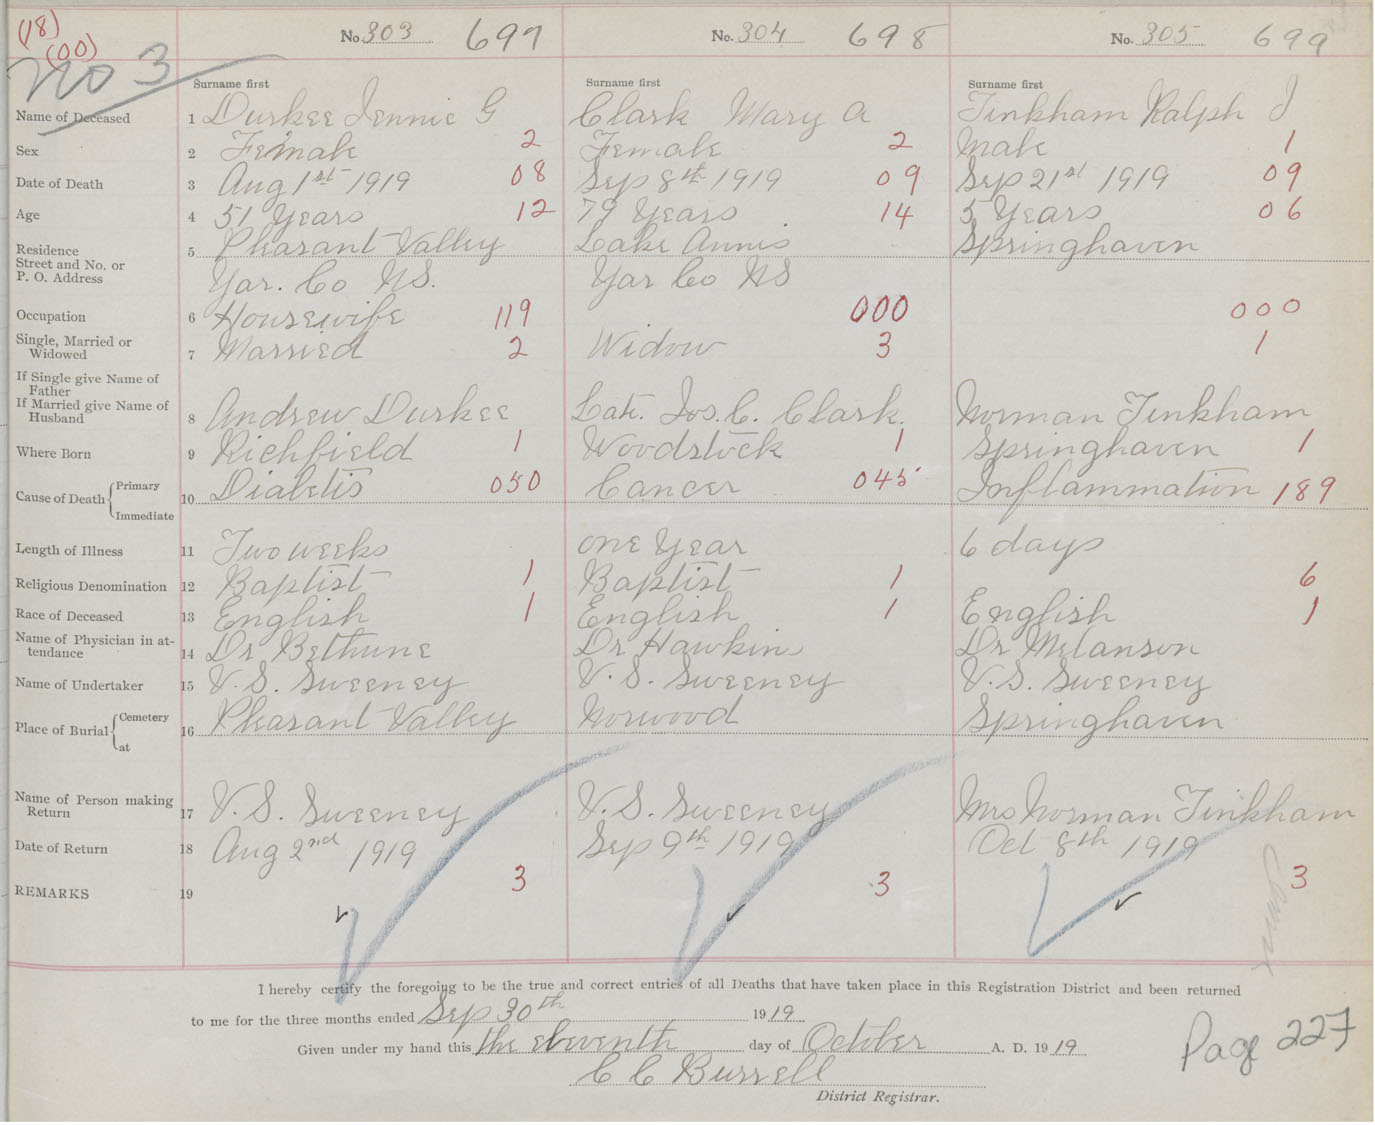 (18)
(00)
No 3
No. 303 697
No. 304 698
No. 305 699
Surname first Surname first Surname first
Name of Deceased 1 Durkee Jennie G Clark Mary A Tinkham Ralph J
Sex 2 Female 2 Female 2 Male 1
Date of Death 3 Aug 1st 1919 08 Sep 8th 1919 09 Sep 21st 1919 09
Age 4 51 Years 12 79 Years 14 5 Years 06
Residence
Street and No. or
P. O. Address
5 Pleasant Valley Lake Annis Springhaven
Yar. Co NS. Yar Co NS
Occupation 6 Housewife 119 000 000
Single, Married or
Widowed 7 Married 2 Widow 3 1
If Single give Name of
Father
If Married give Name of
Husband 8 Andrew Durkee Late. Jos. C. Clark. Norman Tinkham
Where Born 9 Richfield 1 Woodstock 1 Springhaven 1
Cause of Death { Primary
Immediate
10 Diabetis 050 Cancer 045 Inflammation 189
Length of Illness 11 Two weeks one Year 6 days
Religious Denomination 12 Baptist 1 Baptist 1 6
Race of Deceased 13 English 1 English 1 English 1
Name of Physician in at-
tendance 14 Dr Bethune Dr Hawkins Dr Melanson
Name of Undertaker 15 V. S. Sweeney V. S. Sweeney V. S. Sweeney
Place of Burial { Cemetery
at
16 Pleasant Valley Norwood Springhaven
Name of Person making
Return 17 V. S. Sweeney V. S. Sweeney Mrs Norman Tinkham
Date of Return 18 Aug 2nd 1919 Sep 9th 1919 Oct 8th 1919
REMARKS 19 3 3 3
I hereby certify the foregoing to be the true and correct entries of all Deaths that have taken place in this Registration District and been returned
to me for the three months ended Sep 30th 1919
Given under my hand this the eleventh day of October A. D. 1919
C C Burrell
District Registrar.
Page 227